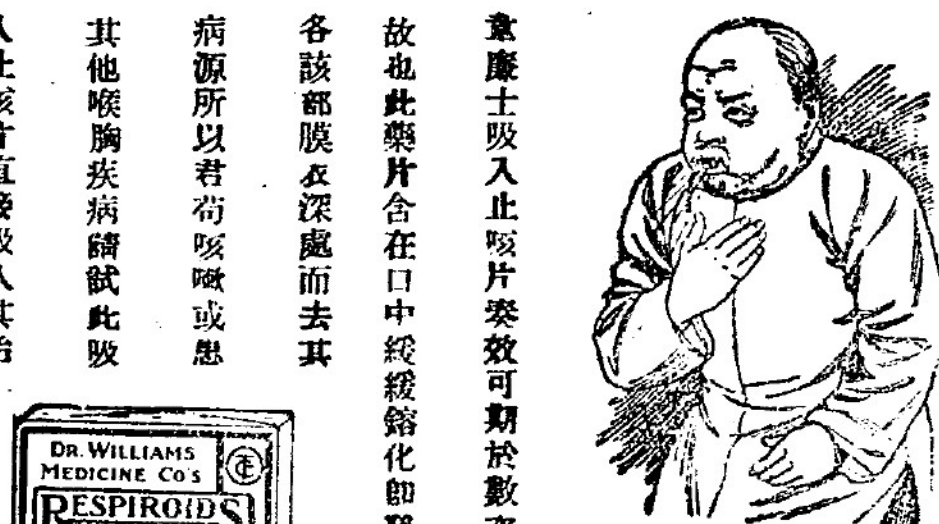 韋廉士吸入止咳片奏效可期於數
故也此藥片含在口中緩緩鎔化卽
各該部膜衣深處而去其
病源所以君苟咳嗽或患
其他喉胸疾病請試此吸
入止咳片直接吸入其治
DR. WILLIAMS
MEDICINE CO'S
RESPIROIDS